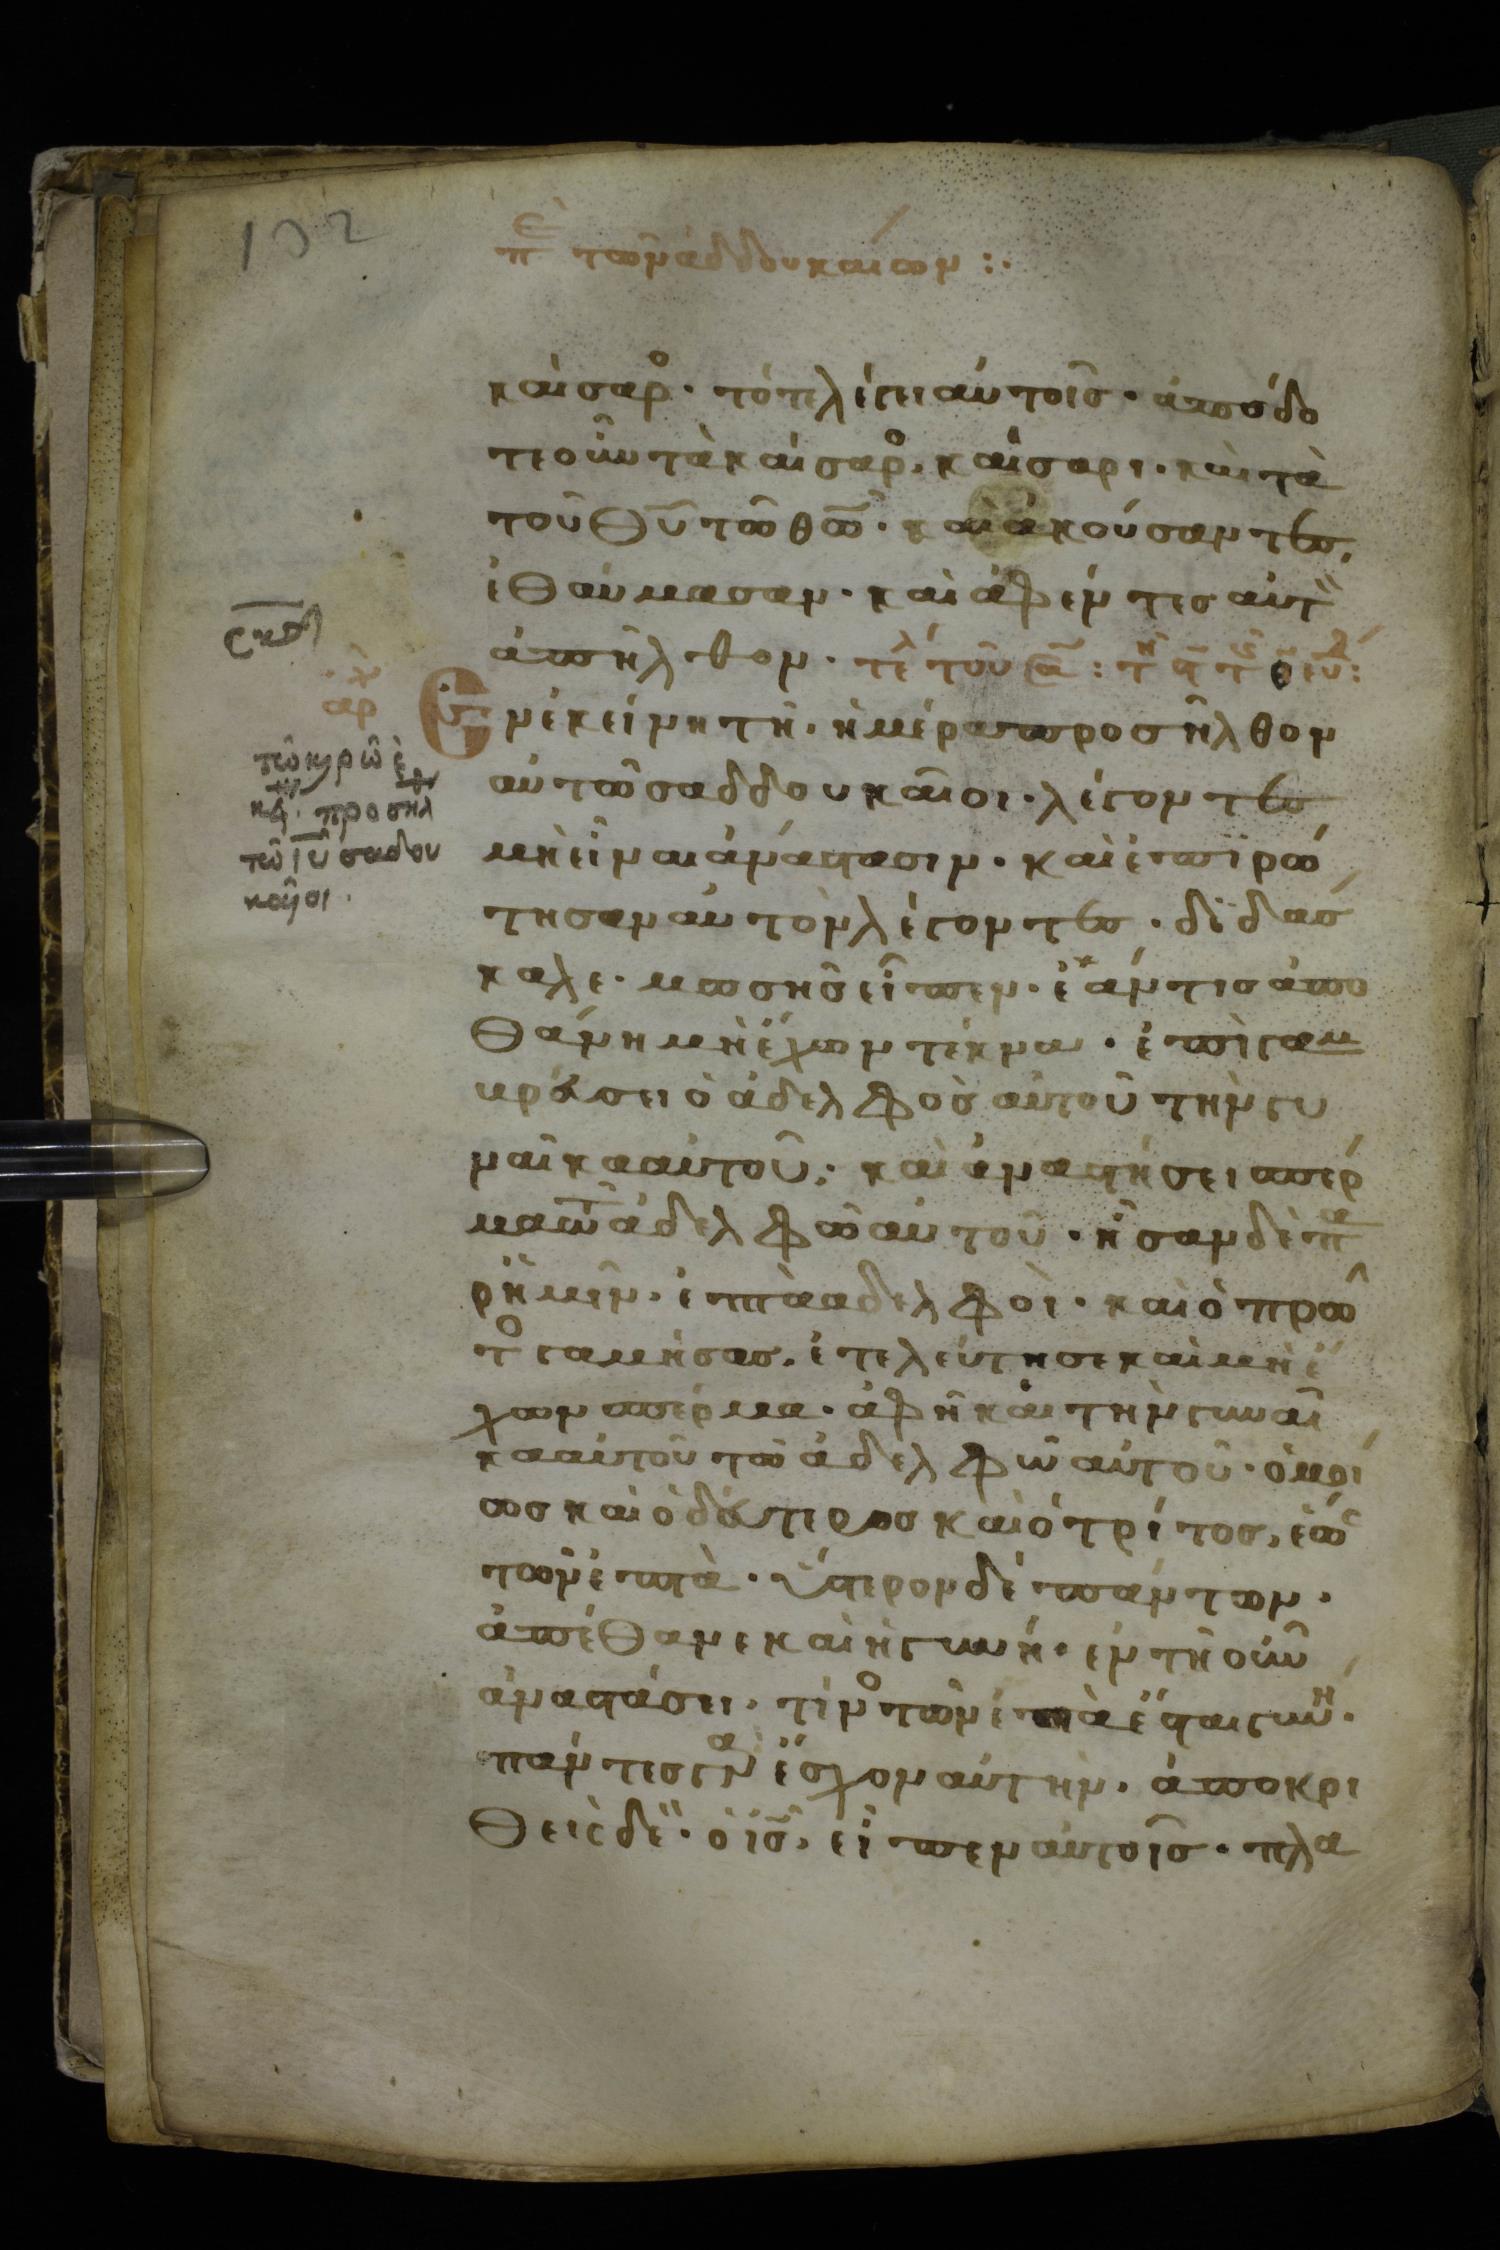 102
πε τῶν ἀδδουκαίων :·
καίσαρο· τότε λέγει αὐτοῖς· ἀπόδο
τε οὖν τὰ καίσαρο, καίσαρι· καὶ τὰ
τοῦ θυ τῶ θω· καὶ ἀκούσαντες,
ἐθαύμασαν· καὶ ἀφέντες αὐτὸ
ἀπῆλθον· τελ τοῦ
σκδ
αρχ
Ἐν ἐκείνη τῆ· ἡμέρα προσῆλθον
τῶ κυρῶ ἐ
αὐτῶ σαδδουκαῖοι· λέγοντες
κη· προσηλ
μὴ εἶναι ἀνάστασιν· καὶ ἐπηρώ
τῶ ιυ σαδου
τησαν αὐτὸν λέγοντες· διδάσ
καῖοι·
καλε· μωσῆς εἶπεν· ἐάν τις ἀπο
θάνη μὴ ἔχων τέκνα· ἐπιγαμ
βρεύσει ὁ ἀδελφὸς αὐτοῦ τὴν γυ
ναῖκα αὐτοῦ· καὶ ἀναστήσει σπέρ
μα τῶ ἀδελφῶ αὐτοῦ· ἦσαν δὲ πα
ρ ἡμῖν· ἑπτὰ ἀδελφοὶ· καὶ ὁ πρῶ
το γαμήσας, ἐτελεύτησε καὶ μὴ ἔ
χων σπέρμα· ἀφῆκαι τὴν γυναῖ
κα αὐτοῦ τῶ ἀδελφῶ αὐτοῦ· ὁμοί
ως καὶ ὁ δεύτερος καὶ ὁ τρίτος, ἕως
τῶν ἑπτὰ· ὕστερον δὲ πάντων·
ἀπέθανε καὶ ἡ γυνή· ἐν τῆ οὖν
ἀναστάσει· τίνο τῶν ἑπτὰ ἔσται γυνή·
πάντες γὰρ ἔσχον αὐτήν· ἀποκρι
θεὶς δὲ· ὁ ισ, εἶπεν αὐτοῖς· πλα